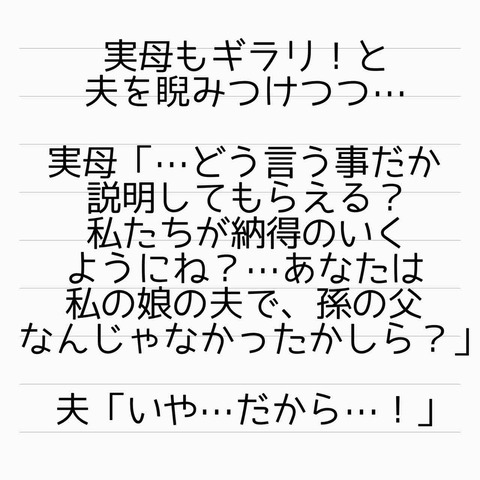 実母もギラリ！と
夫を睨みつけつつ…
実母「…どう言う事だか
説明してもらえる？
私たちが納得のいく
ようにね？…あなたは
私の娘の夫で、孫の父
なんじゃなかったかしら？」
夫「いや…だから…！」